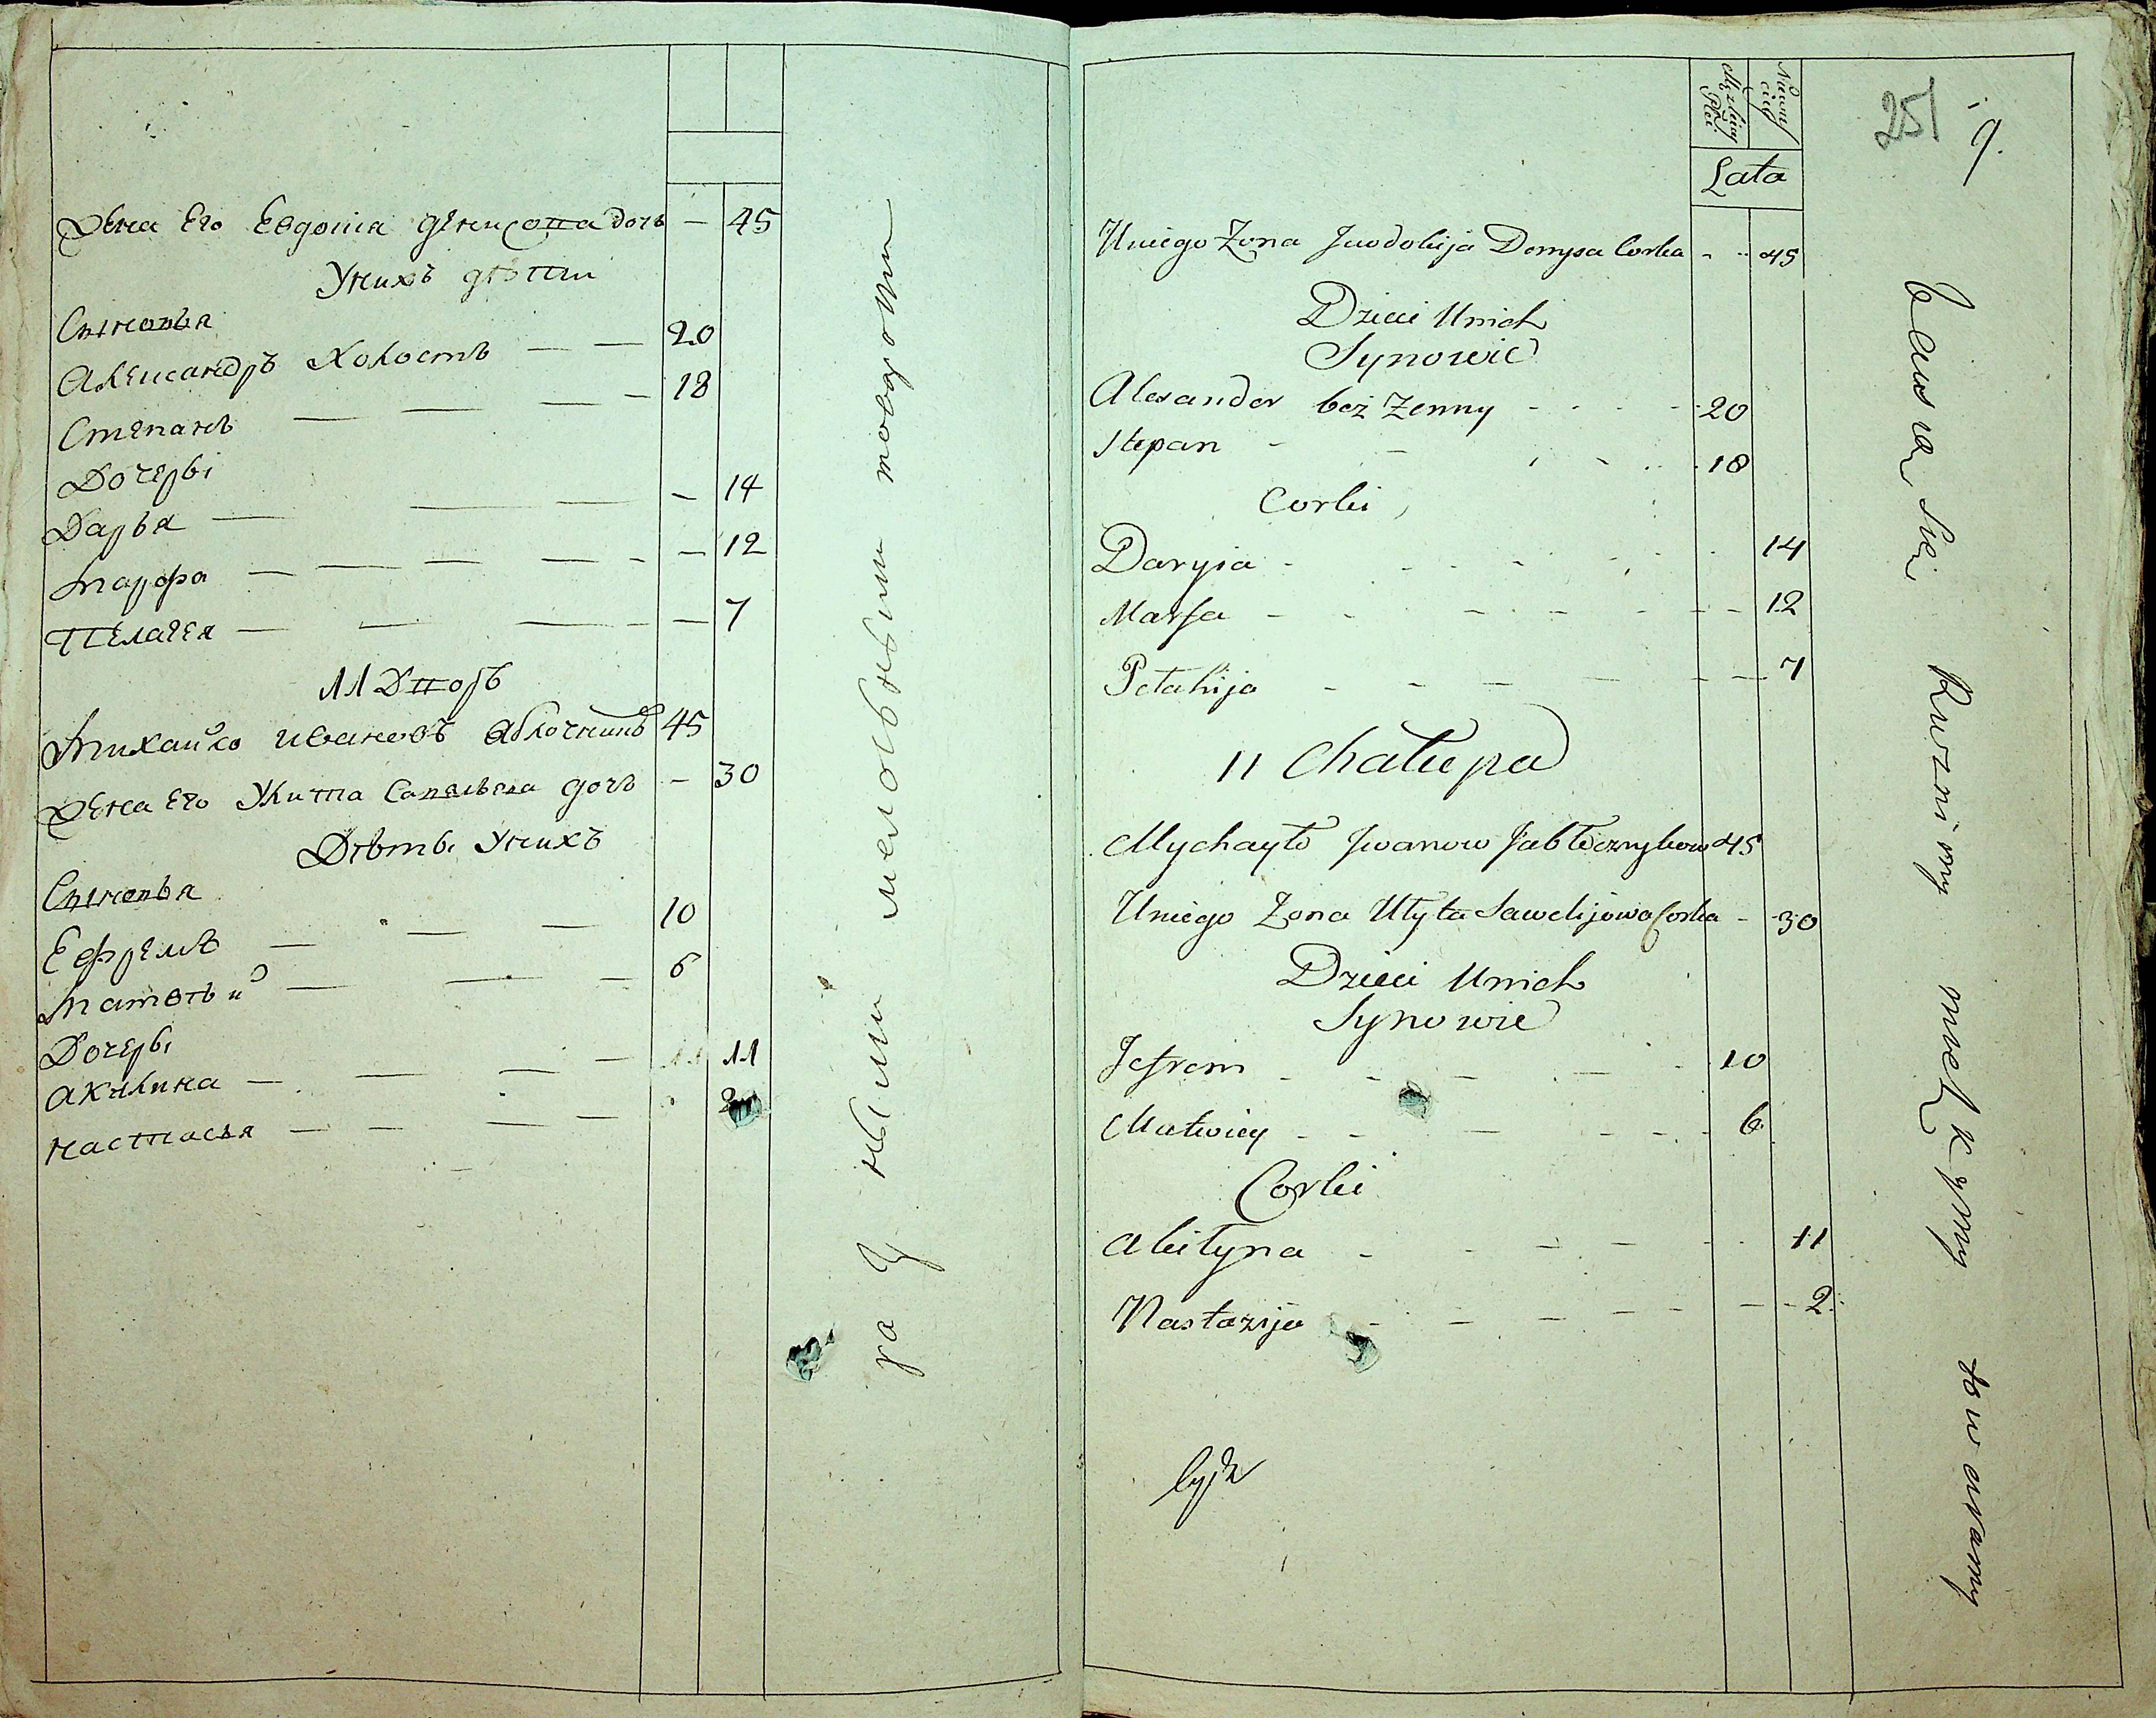 Жена Его Евдокия Денисова дочь — 45
У них дѣти
Сыновья
Александръ Холостъ — — 20
Степанъ — — — — 18
Дочерьі
Дарья — — — — 14
Марфа — — — — — — 12
Пелагея — — — — — 7
11 Дворъ
Михайло Ивановъ Аблочник 45
Жена Его Улита Савельева дочь — 30
Дѣты У нихъ
Сыновья
Ефремъ — — — 10
Матвѣй — — — 6
Дочерьі
Акилина — — — — 11
Настасья — — — — 2
ра з ными мелочьными товороми
251
9.
Męzkiey Płci
Niewom ciey
Lata
Uniego Żona Jwdokija Denysa Corka - - 45
Dzieci Unich
Synowie
Alexander bez Zenny - - - - 20
Stepan - - - - 18
Corki
Daryia - - - - - 14
Marfa - - - - - - 12
Pełahija - - - - - - 7
11 Chałupa
Mychayło Jwanow Jabłocznykow 45
Uniego Żona Ulyta Sawelijowa Corka - 30
Dzieci Unich
Synowie
Jefrem - - - - - 10
Matwiey - - - - - 6
Corki
Akilyna - - - - - - 11
Nastazija - - - - - - 2
bawią się Rużnimy mełkymy towaramy